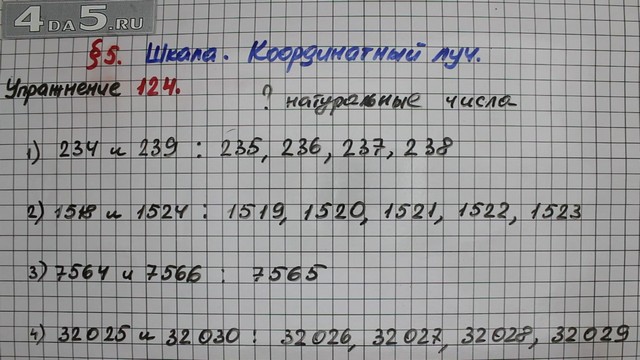 4DA5.RU
§5. Шкала. Координатный луч.
Упражнение 124.
? натуральные числа
1) 234 и 239 : 235, 236, 237, 238
2) 1518 и 1524 : 1519, 1520, 1521, 1522, 1523
3) 7564 и 7566 : 7565
4) 32025 и 32030 : 32026, 32027, 32028, 32029